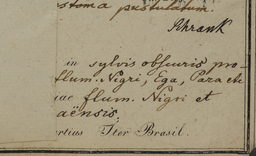 stoma pustulatum.
Schrank
in sylvis obscuris pro-
flum. Nigri, Ega, Para etc
flum. Nigri et
aënsis.
rtius Iter Brasil.